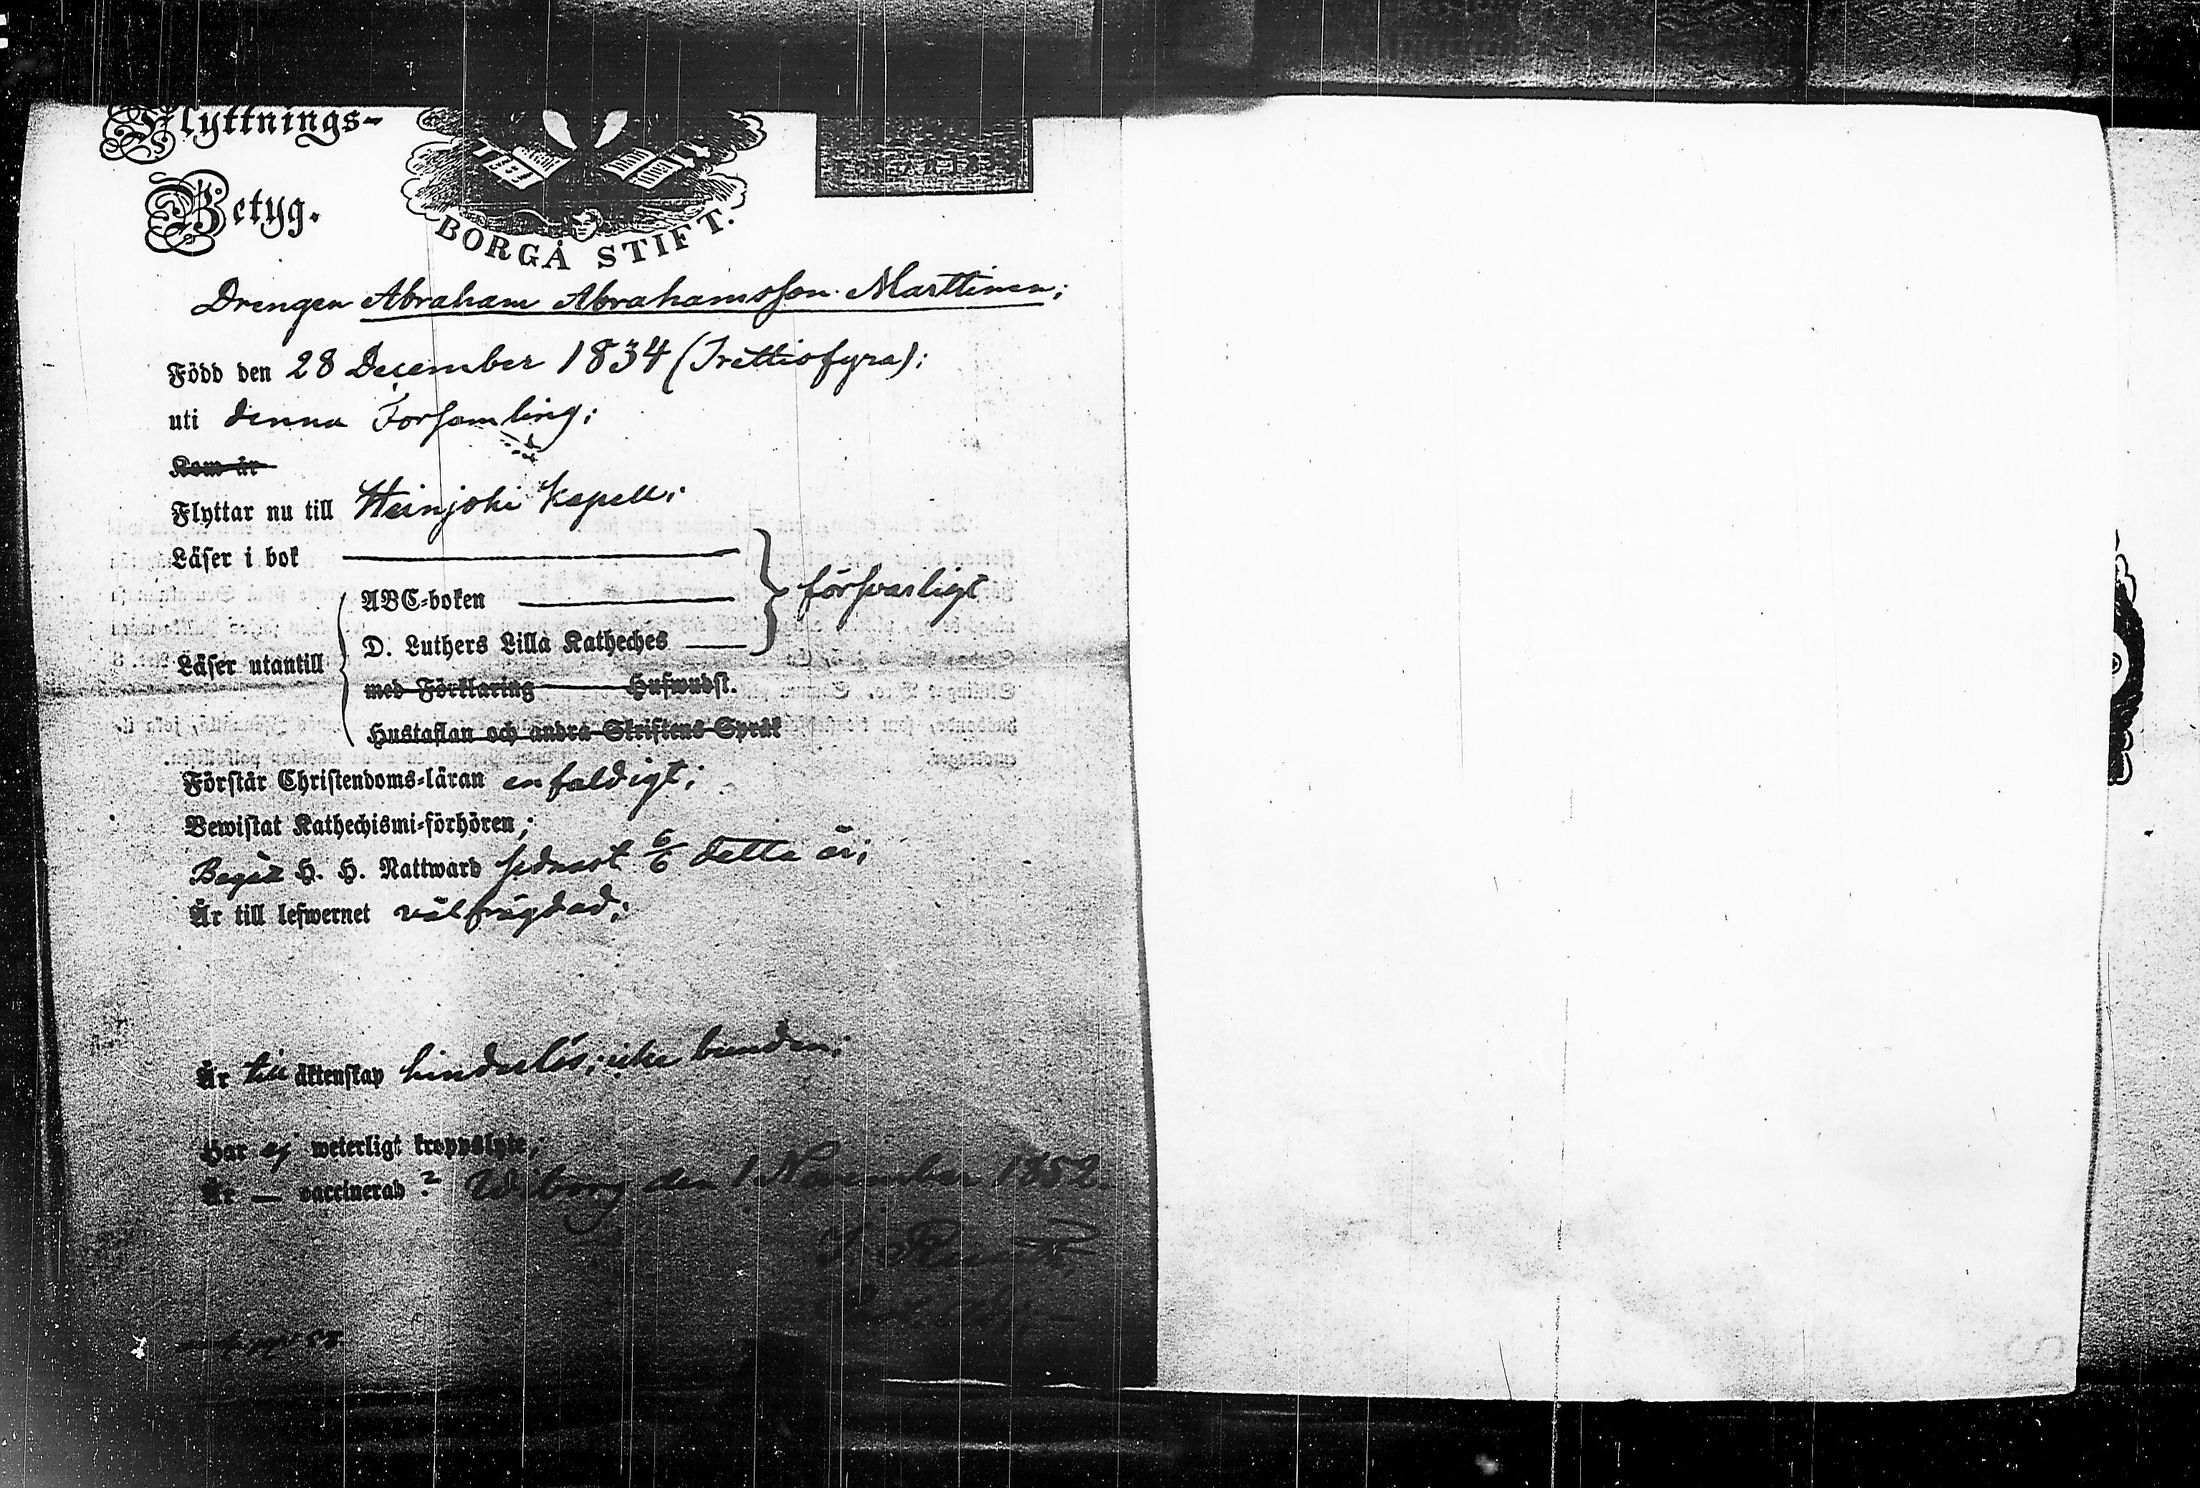 Flyttnings-
Betyg.
BORGÅ STIFT.
Drengen Abraham Abrahamsson Marttinen;
Född den 28 December 1834 (Trettiofyra);
uti denna Församling;
Kom år
Flyttar nu till Heinjoki Kapell;
Läser i bok
försvarligt
Läser utantill
ABC-boken
D. Luthers Lilla Katheches
med Förklaring Hufwudst.
Hustaflan och andra Skriftens Språk
Förstår Christendoms-läran enfaldigt;
Bewistat Kathechismi-förhören;
Begått H. H. Nattward sednast 6/6 detta år;
Är till lefwernet välfrägdad;
Är till äktenskap hinderlös; icke bunden;
Har ej weterligt kroppslyte;
Är — vaccinerad? Wiborg den 1 November 1852.